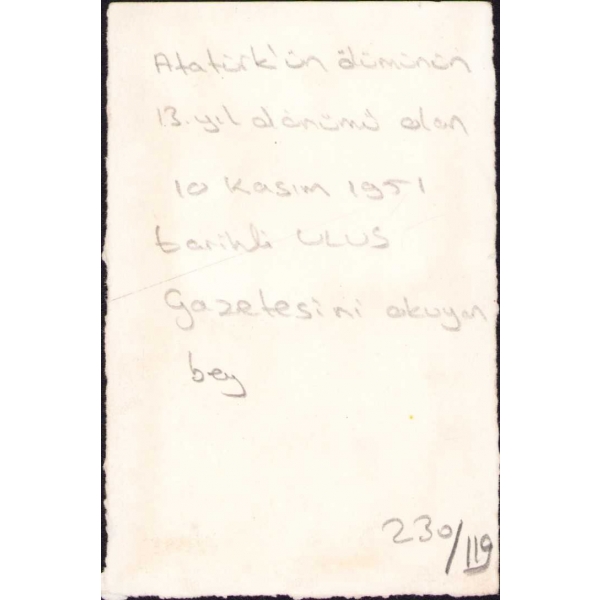 Atatürk'ün ölümünün
13. yıl dönümü olan
10 Kasım 1951
tarihli ULUS
gazetesini okuyan
bey
230/119